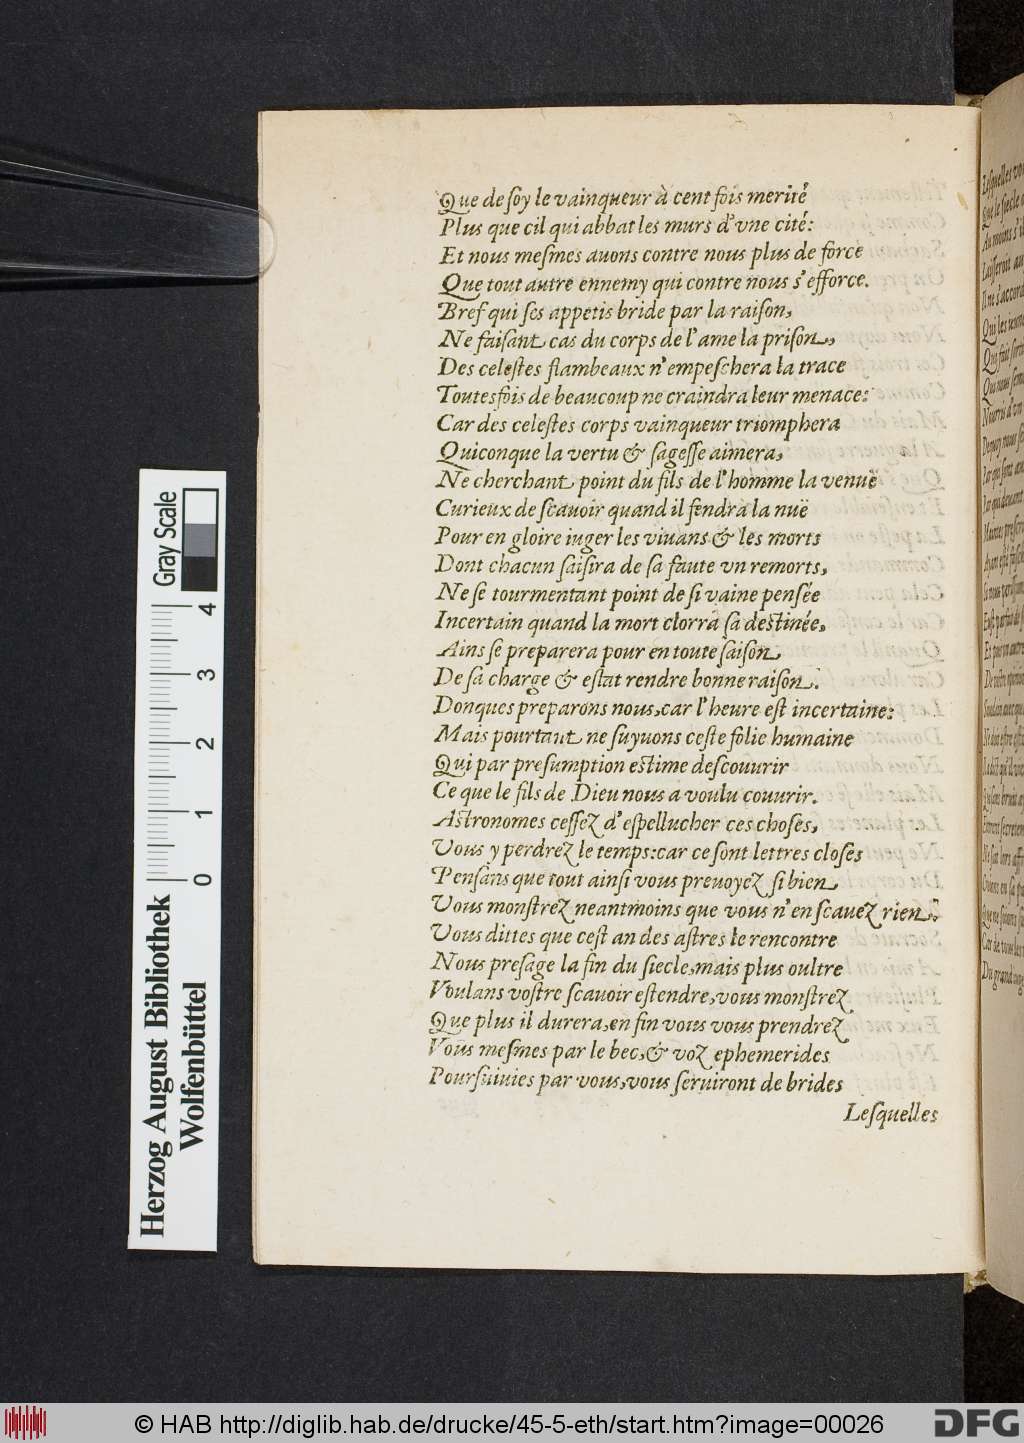 Que de soy le vainqueur à cent fois merité
Plus que cil qui abbat les murs d'vne cité:
Et nous mesmes auons contre nous plus de force
Que tout autre ennemy qui contre nous s'efforce.
Bref qui ses appetis bride par la raison,
Ne faisant cas du corps de l'ame la prison,
Des celestes flambeaux n'empeschera la trace
Toutesfois de beaucoup ne craindra leur menace:
Car des celestes corps vainqueur triomphera
Quiconque la vertu & sagesse aimera,
Ne cherchant point du fils de l'homme la venuë
Curieux de scauoir quand il fendra la nuë
Pour en gloire iuger les viuans & les morts
Dont chacun saisira de sa faute vn remorts,
Ne se tourmentant point de si vaine pensée
Incertain quand la mort clorra sa destinée,
Ains se preparera pour en toute saison
De sa charge & estat rendre bonne raison.
Donques preparons nous, car l'heure est incertaine:
Mais pourtant ne suyuons ceste folie humaine
Qui par presumption estime descouurir
Ce que le fils de Dieu nous a voulu couurir.
Astronomes cessez d'espellucher ces choses,
Vous y perdrez le temps: car ce sont lettres closes
Pensans que tout ainsi vous preuoyez si bien
Vous monstrez neantmoins que vous n'en scauez rien.
Vous dittes que cest an des astres le rencontre
Nous presage la fin du siecle, mais plus oultre
Voulans vostre scauoir estendre, vous monstrez
Que plus il durera, en fin vous vous prendrez
Vous mesmes par le bec, & voz ephemerides
Poursuiuies par vous, vous seruiront de brides
Lesquelles
Gray Scale
0 1 2 3 4
Herzog August Bibliothek
Wolfenbüttel
© HAB http://diglib.hab.de/drucke/45-5-eth/start.htm?image=00026
DFG